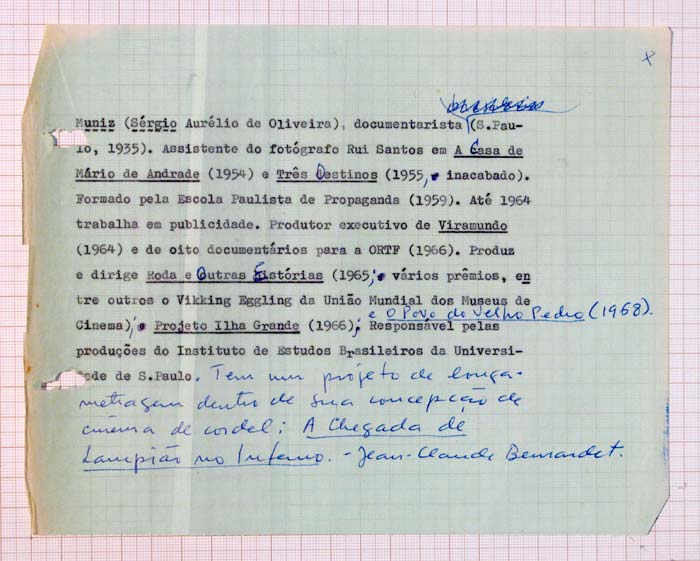 x
Muniz (Sérgio Aurélio de Oliveira), documentarista (S.Pau-
lo, 1935). Assistente do fotógrafo Rui Santos em A Casa de
Mário de Andrade (1954) e Três Destinos (1955, inacabado).
Formado pela Escola Paulista de Propaganda (1959). Até 1964
trabalha em publicidade. Produtor executivo de Viramundo
(1964) e de oito documentários para a ORTF (1966). Produz
e dirige Roda e Outras Estórias (1965; vários prêmios, en
tre outros o Vikking Eggling da União Mundial dos Museus de
e O Povo do Velho Pedro (1968).
Cinema), Projeto Ilha Grande (1966); Responsável pelas
produções do Instituto de Estudos Brasileiros da Universi-
dade de S.Paulo. Tem um projeto de longa-
metragem dentro de sua concepção de
cinema de cordel: A Chegada de
Lampião no Inferno. - Jean-Claude Bernardet.